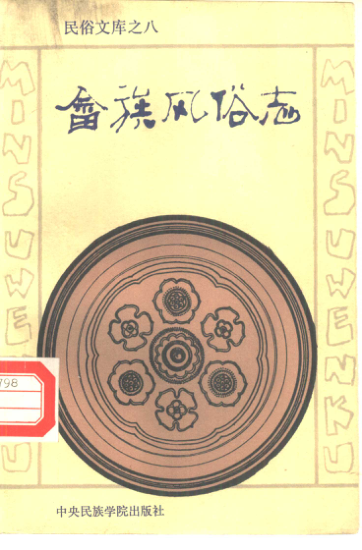 民俗文库之八
畲族风俗志
MINSUWEN
U
MINSUWENKU
798
中央民族学院出版社